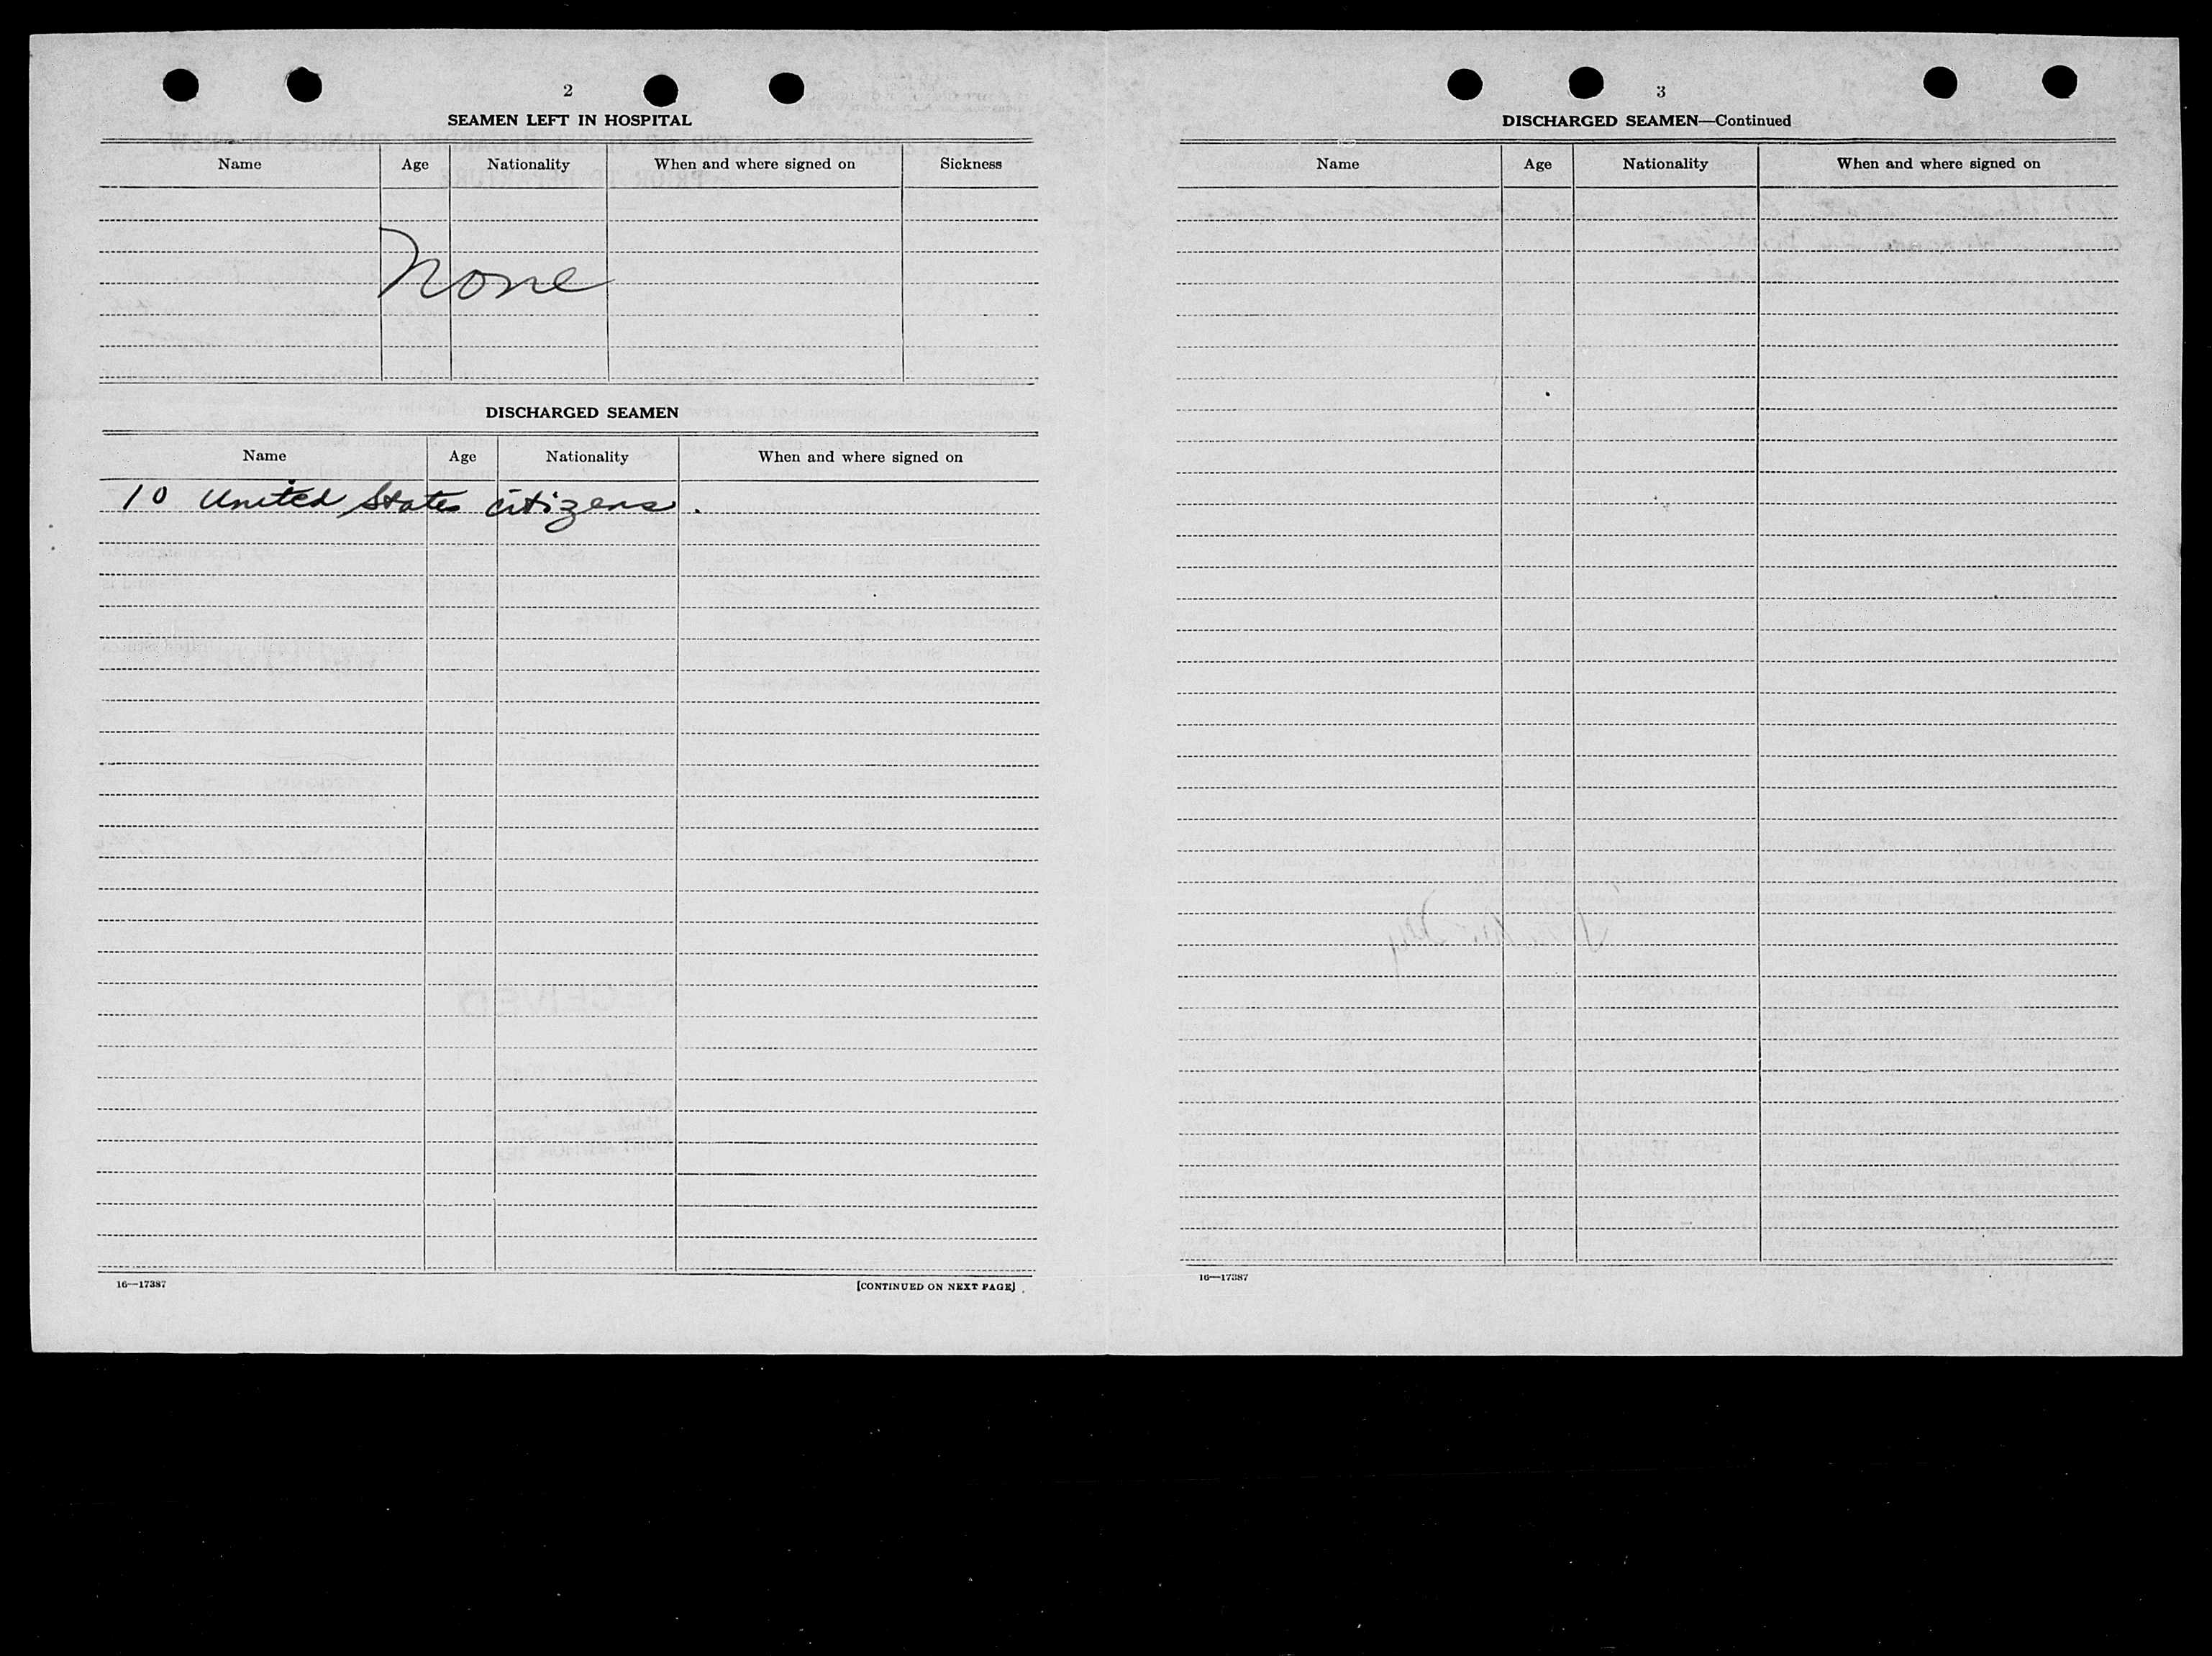 2
SEAMEN LEFT IN HOSPITAL
Name Age Nationality When and where signed on Sickness
None
DISCHARGED SEAMEN
Name Age Nationality When and where signed on
10 United States citizens.
16—17387 [CONTINUED ON NEXT PAGE]
3
DISCHARGED SEAMEN—Continued
Name Age Nationality When and where signed on
16—17387